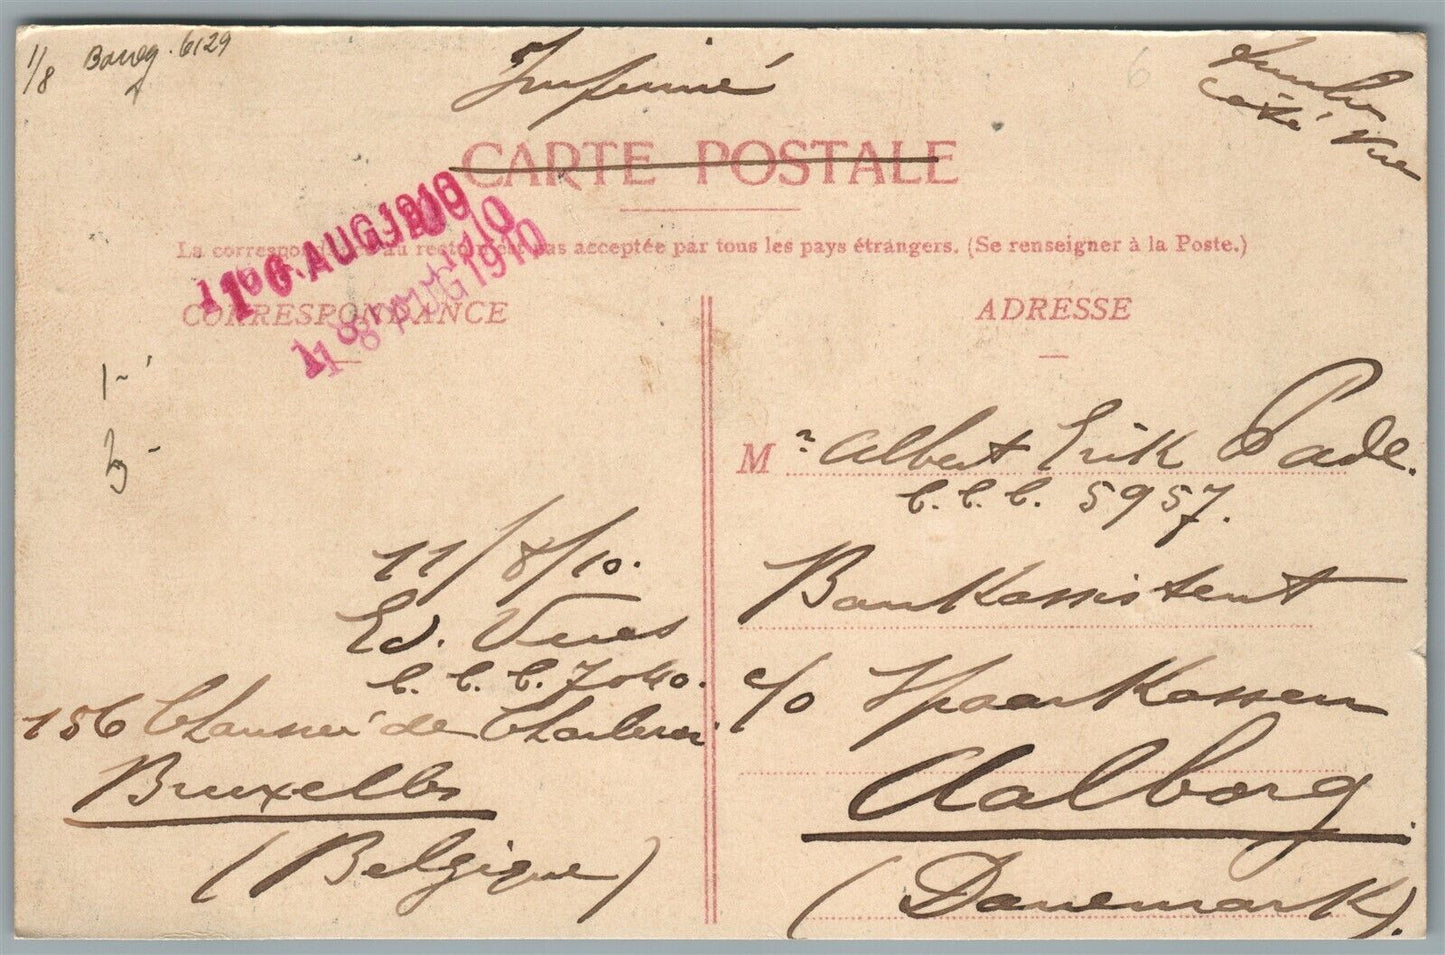 1/8
6129
Imprimé
Timbre
côté vue
CARTE POSTALE
La correspondance au recto n'est pas acceptée par tous les pays étrangers. (Se renseigner à la Poste.)
AUG 1910
AUG 1910
CORRESPONDANCE
ADRESSE
11/8/10.
Ed.
C. C. C. 7040.
156 Chaussée de Charleroi
Bruxelles
(Belgique)
M r Albert Erik Pade.
C. C. C. 5957.
Bankassistent
c/o Sparkassen
Aalborg.
(Danemark).